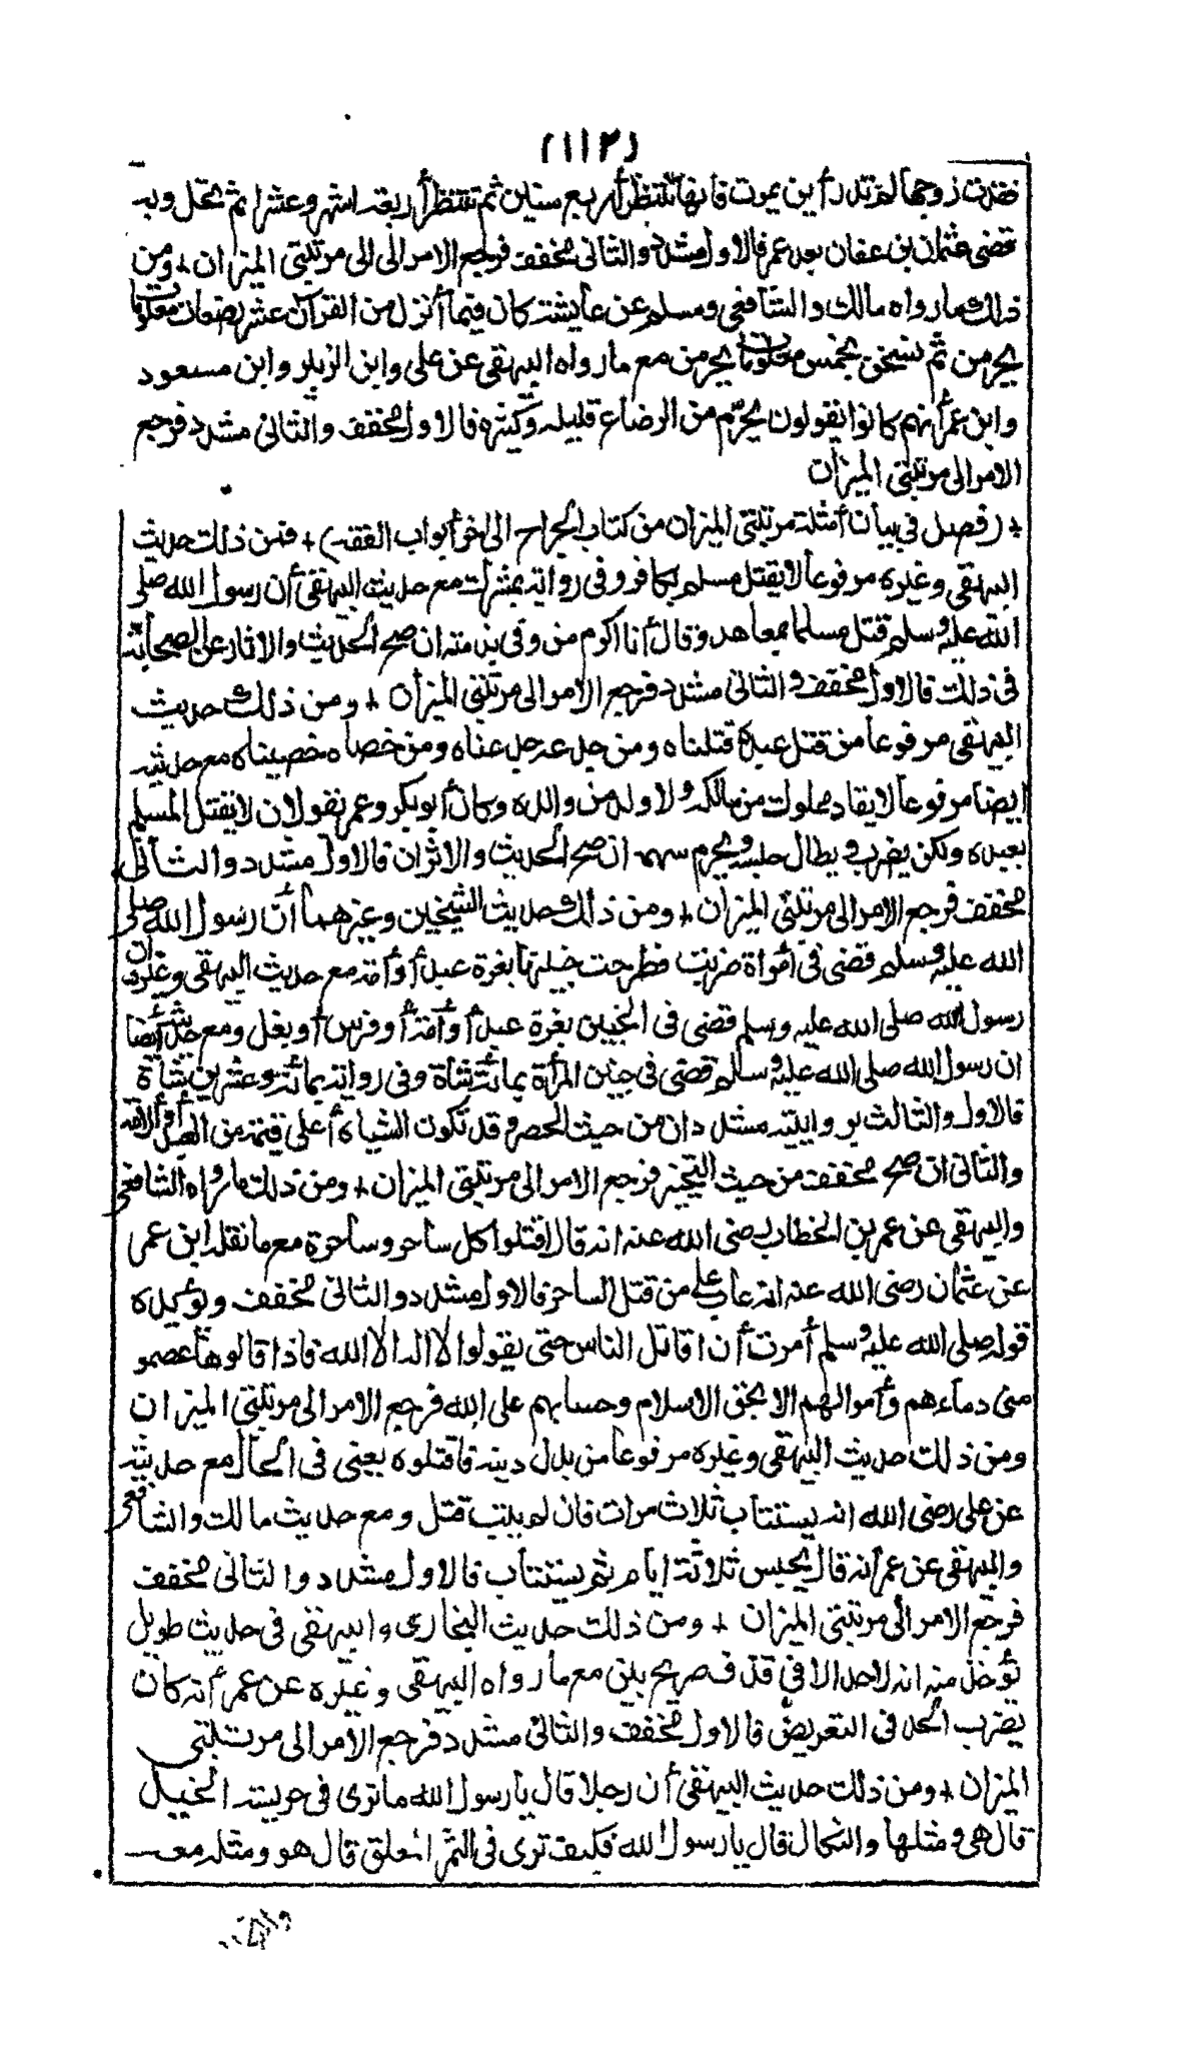 (١١٢)
فقدت زوجها لم تدر أين يموت فانها تنتظر أربع سنين ثم تنتظر أربعة اشهر وعشرا ثم تحل وبه
قضى عثمان بن عفان بعد عمر فالاول مشدد والثانى مخفف فرجع الامر الى الى مرتبتى الميزان + ومن
ذلك ما رواه مالك والشافعى ومسلم عن عايشة كان فيما أنزل من القرآن عشر رضعات معلومات
يحرمن ثم نسخن بخمس معلومات يحرمن مع ما رواه البيهقى عن على وابن الزبير وابن مسعود
وابن عمر أنهم كانوا يقولون يحرّم من الرضاع قليله وكثيره فالاول مخفف والثانى مشدد فرجع
الامر الى مرتبتى الميزان
+ (فصل فى بيان أمثلة مرتبتى الميزان من كتاب الجراح الى اخر أبواب الفقه) + فمن ذلك حديث
البيهقى وغيره مرفوعا لا يقتل مسلم بكافر وفى رواية بمشرك مع حديث البيهقى أن رسول الله صلى
الله عليه وسلم قتل مسلما بمعاهد وقال أنا اكرم من وفى بذمته ان صح الحديث والاثار عن الصحابة
فى ذلك فالاول مخفف والثانى مشدد فرجع الامر الى مرتبتى الميزان + ومن ذلك حديث
البيهقى مرفوعا من قتل عبده قتلناه ومن جدعه جدعناه ومن خصاه خصيناه مع حديثه
ايضا مرفوعا لا يقاد مملوك من مالكه ولا ولد من والده وكان أبو بكر وعمر يقولان لا يقتل المسلم
بعبده ولكن يضرب ويطال حبسه ويحرم سهمه ان صح الحديث والاثران فالاول مشدد والثانى
مخفف فرجع الامر الى مرتبتى الميزان + ومن ذلك حديث الشيخين وغيرهما أن رسول الله صلى
الله عليه وسلم قضى فى امرأة ضربت فطرحت جنينها بغرة عبد أو أمة مع حديث البيهقى وغيره ان
رسول الله صلى الله عليه وسلم قضى فى الجنين بغرة عبد أو أمة أو فرس أو بغل ومع حديثه أيضا
ان رسول الله صلى الله عليه وسلم قضى فى جنين المرأة بمائة شاة وفى رواية بمائة وعشرين شاة
فالاول والثالث بروايتيه مشددان من حيث الحصر وقد تكون الشياه أعلى قيمة من العبد أو الامة
والثانى ان صح مخففة من حيث التخيير فرجع الامر الى مرتبتى الميزان + ومن ذلك ما رواه الشافعى
والبيهقى عن عمر بن الخطاب رضى الله عنه انه قال اقتلوا كل ساحر وساحرة مع ما نقله ابن عمر
عن عثمان رضى الله عنه انه عاب على من قتل الساحر فالاول مشدد والثانى مخفف ويؤيده
قوله صلى الله عليه وسلم أمرت أن اقاتل الناس حتى يقولوا لا اله الا الله فاذا قالوها عصموا
منى دماءهم وأموالهم الا بحق الاسلام وحسابهم على الله فرجع الامر الى مرتبتى الميزان
ومن ذلك حديث البيهقى وغيره مرفوعا من بدل دينه فاقتلوه يعنى فى الحال مع حديثه
عن على رضى الله انه يستتاب ثلاث مرات فان لم يتب قتل ومع حديث مالك والشافعى
والبيهقى عن عمر أنه قال يحبس ثلاثة ايام ثم يستتاب فالاول مشدد والثانى مخفف
فرجع الامر الى مرتبتى الميزان + ومن ذلك حديث البخارى والبيهقى فى حديث طويل
تؤخذ منه انه لا حد الا فى قذف صريح بين مع ما رواه البيهقى وغيره عن عمر أنه كان
يضرب الحد فى التعريض فالاول مخفف والثانى مشدد فرجع الامر الى مرتبتى
الميزان + ومن ذلك حديث البيهقى أن رجلا قال يا رسول الله ما ترى فى حريسة الجبل
قال هى ومثلها والنكال قال يا رسول الله فكيف ترى فى الثمر المعلق قال هو ومثله معه